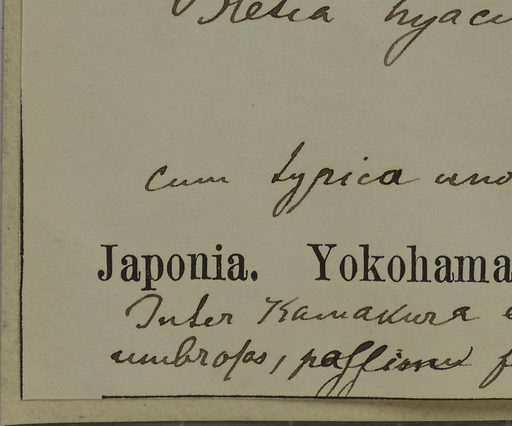 Bletia hyaci
cum typica uno
Japonia. Yokohama
Inter Kamakura e
umbrosos, passim f